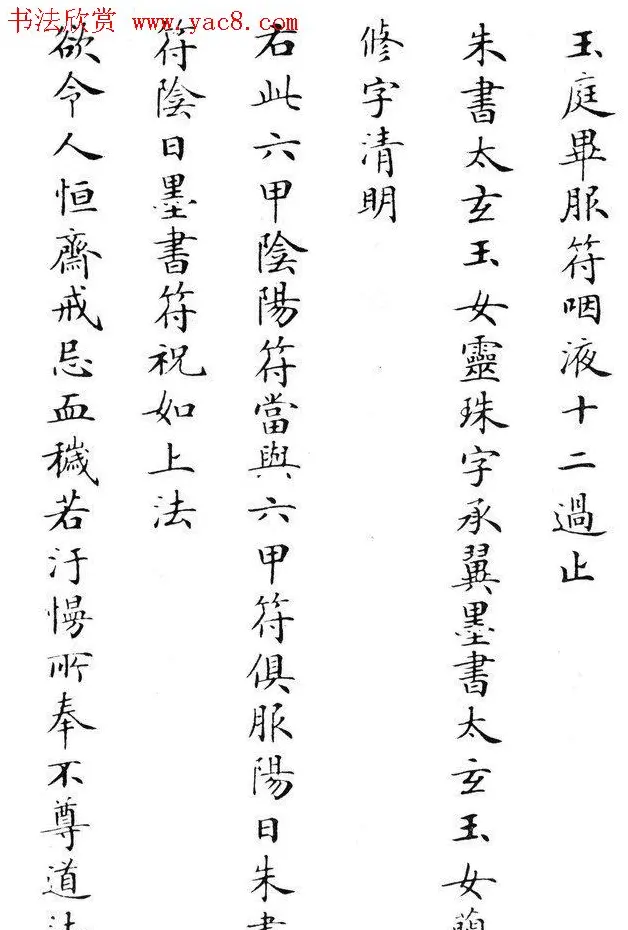 书法欣赏
www.yac8.com
玉庭畢服符咽液十二過止
朱書太玄玉女靈珠字承翼墨書太玄玉女
脩字清明
右此六甲陰陽符當與六甲符俱服陽日朱書
符陰日墨書符祝如上法
欲令人恒齋戒忌血穢若汙慢所奉不尊道法